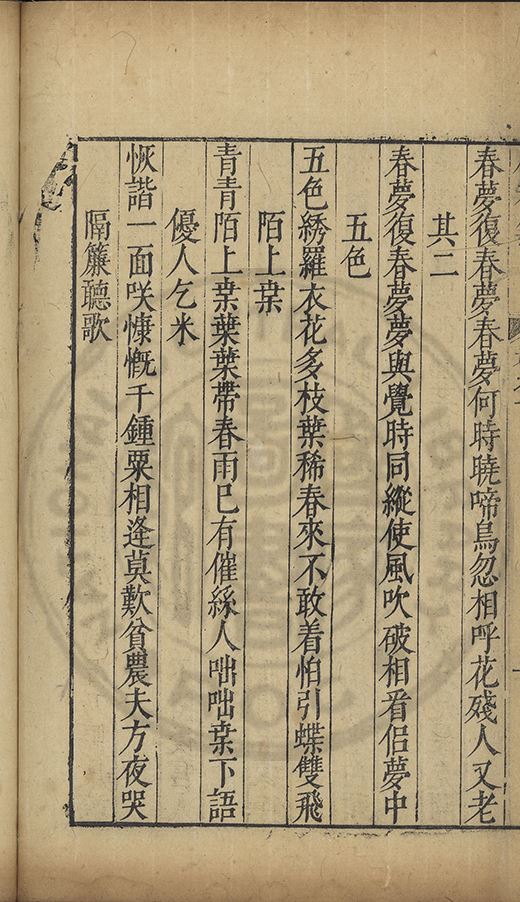 春夢復春夢春夢何時曉啼鳥忽相呼花殘人又老
其二
春夢復春夢夢與覺時同縱使風吹破相看侶夢中
五色
五色綉羅衣花多枝葉稀春來不敢着怕引蝶雙飛
陌上桒
青青陌上桒葉葉帶春雨巳有催絲人咄咄桒下語
優人乞米
恢諧一面咲慷慨千鍾粟相逢莫歎貧農夫方夜哭
隔簾聽歌